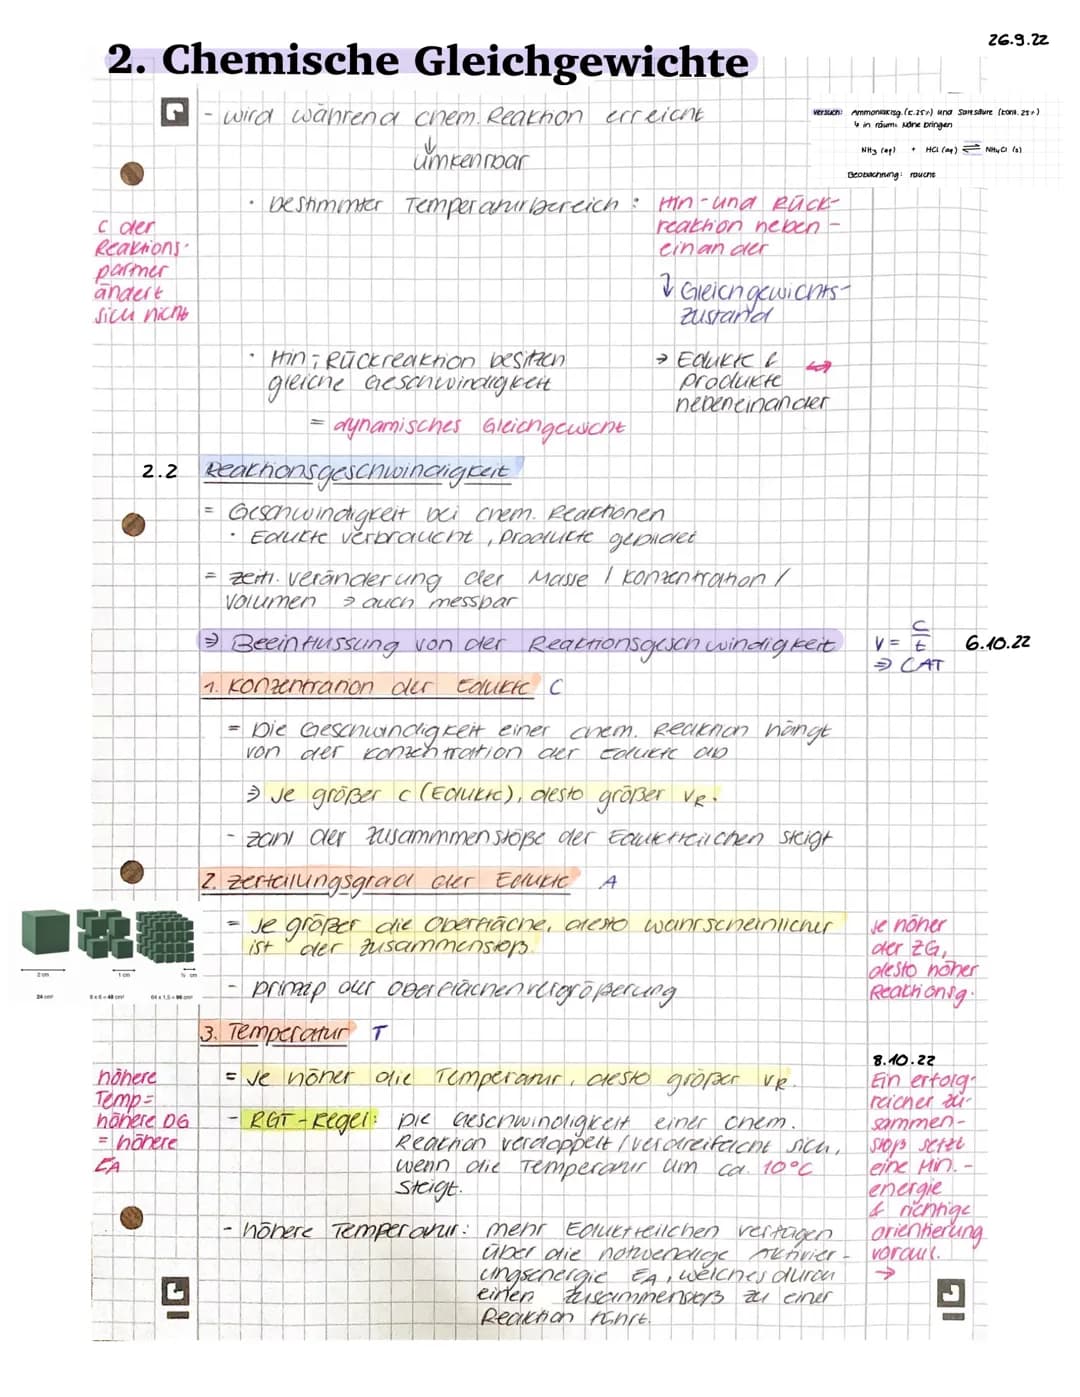 26.9.22
2. Chemische Gleichgewichte
- wird während chem. Reaktion erreicht
↓
umkehrbar
Versuch: Ammoniaklsg. (c. 25%) und Salzsäure (konz. 25%)
↳ in räuml. Nähe bringen
NH3 (aq) + HCl (aq) ⇌ NH4Cl (s)
Beobachtung: raucht
• bestimmter Temperaturbereich : Hin- und Rück-
reaktion neben-
einander
c der
Reaktions-
partner
ändert
sich nicht
↓ Gleichgewichts-
zustand
• Hin-, Rückreaktion besitzen
gleiche Geschwindigkeit
= dynamisches Gleichgewicht
→ Edukte &
Produkte
nebeneinander
2.2 Reaktionsgeschwindigkeit
= Geschwindigkeit bei chem. Reaktionen
• Edukte verbraucht, Produkte gebildet
= zeitl. Veränderung der Masse / Konzentration /
Volumen → auch messbar
⇒ Beeinflussung von der Reaktionsgeschwindigkeit
v = c/t
⇒ CAT
6.10.22
1. Konzentration der Edukte C
= Die Geschwindigkeit einer chem. Reaktion hängt
von der Konzentration der Edukte ab
⇒ Je größer c (Edukte), desto größer vR.
- Zahl der Zusammmenstöße der Eduktteilchen steigt
2. Zerteilungsgrad der Edukte A
= Je größer die Oberfläche, desto wahrscheinlicher
ist der Zusammenstoß.
- Prinzip der Oberflächenvergrößerung
Je höher
der ZG,
desto höher
Reaktionsg.
2 cm
1 cm
½ cm
24 cm²
8 x 6 = 48 cm²
64 x 1,5 = 96 cm²
3. Temperatur T
= Je höher die Temperatur, desto größer vR.
- RGT-Regel: Die Geschwindigkeit einer chem.
Reaktion verdoppelt / verdreifacht sich,
wenn die Temperatur um ca. 10°C
steigt.
höhere
Temp =
höhere DG
= höhere
EA
- höhere Temperatur: mehr Eduktteilchen verfügen
über die notwendige Aktivier-
ungsenergie EA, welches durch
einen Zusammenstoß zu einer
Reaktion führt.
8.10.22
Ein erfolg-
reicher Zu-
sammen-
stoß setzt
eine Min.-
energie
& richtige
Orientierung
voraus.
→